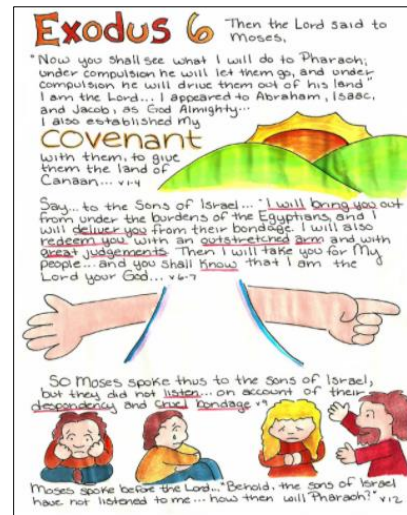 Exodus 6 Then the Lord said to
Moses,
"Now you shall see what I will do to Pharaoh;
under compulsion he will let them go, and under
compulsion he will drive them out of his land
I am the Lord... I appeared to Abraham, Isaac,
and Jacob, as God Almighty...
I also established My
COVENANT
with them, to give
them the land of
Canaan... v1-4
Say... to the Sons of Israel... "I will bring you out
from under the burdens of the Egyptians, and I
will deliver you from their bondage. I will also
redeem you with an outstretched arm and with
great judgements. Then I will take you for My
people... and you shall know that I am the
Lord your God... v6-7
So Moses spoke thus to the sons of Israel,
but they did not listen... on account of their
despondency and cruel bondage v9
Moses spoke before the Lord... "Behold, the sons of Israel
have not listened to me... how then will Pharaoh?" v12